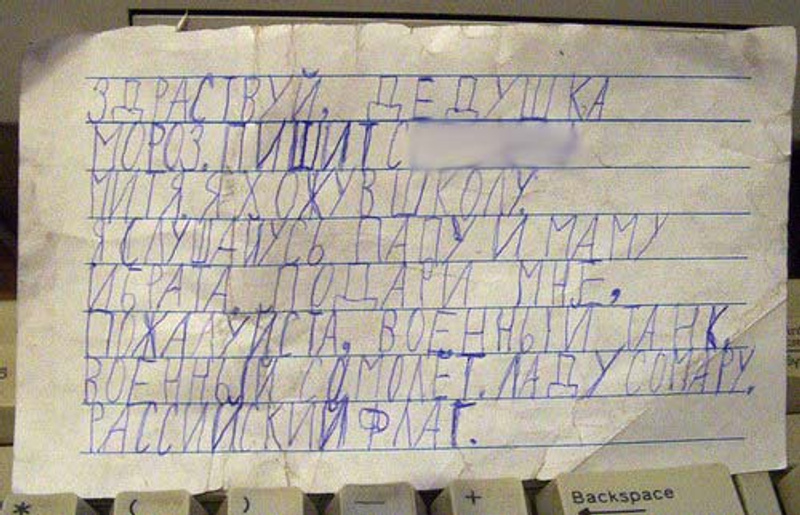 ЗДРАСТВУЙ, ДЕДУШКА
МОРОЗ. ПИШИТ С
МИТЯ. Я ХОЖУ В ШКОЛУ.
Я СЛУШАЙУСЬ ПАПУ И МАМУ
И БРАТА. ПОДАРИ МНЕ,
ПОЖАЛУЙСТА, ВОЕННЫЙ ТАНК,
ВОЕННЫЙ СОМОЛЁТ. ЛАДУ СОМАРУ,
РАССИЙСКИЙ ФЛАГ.
* ( ) — +
Backspace